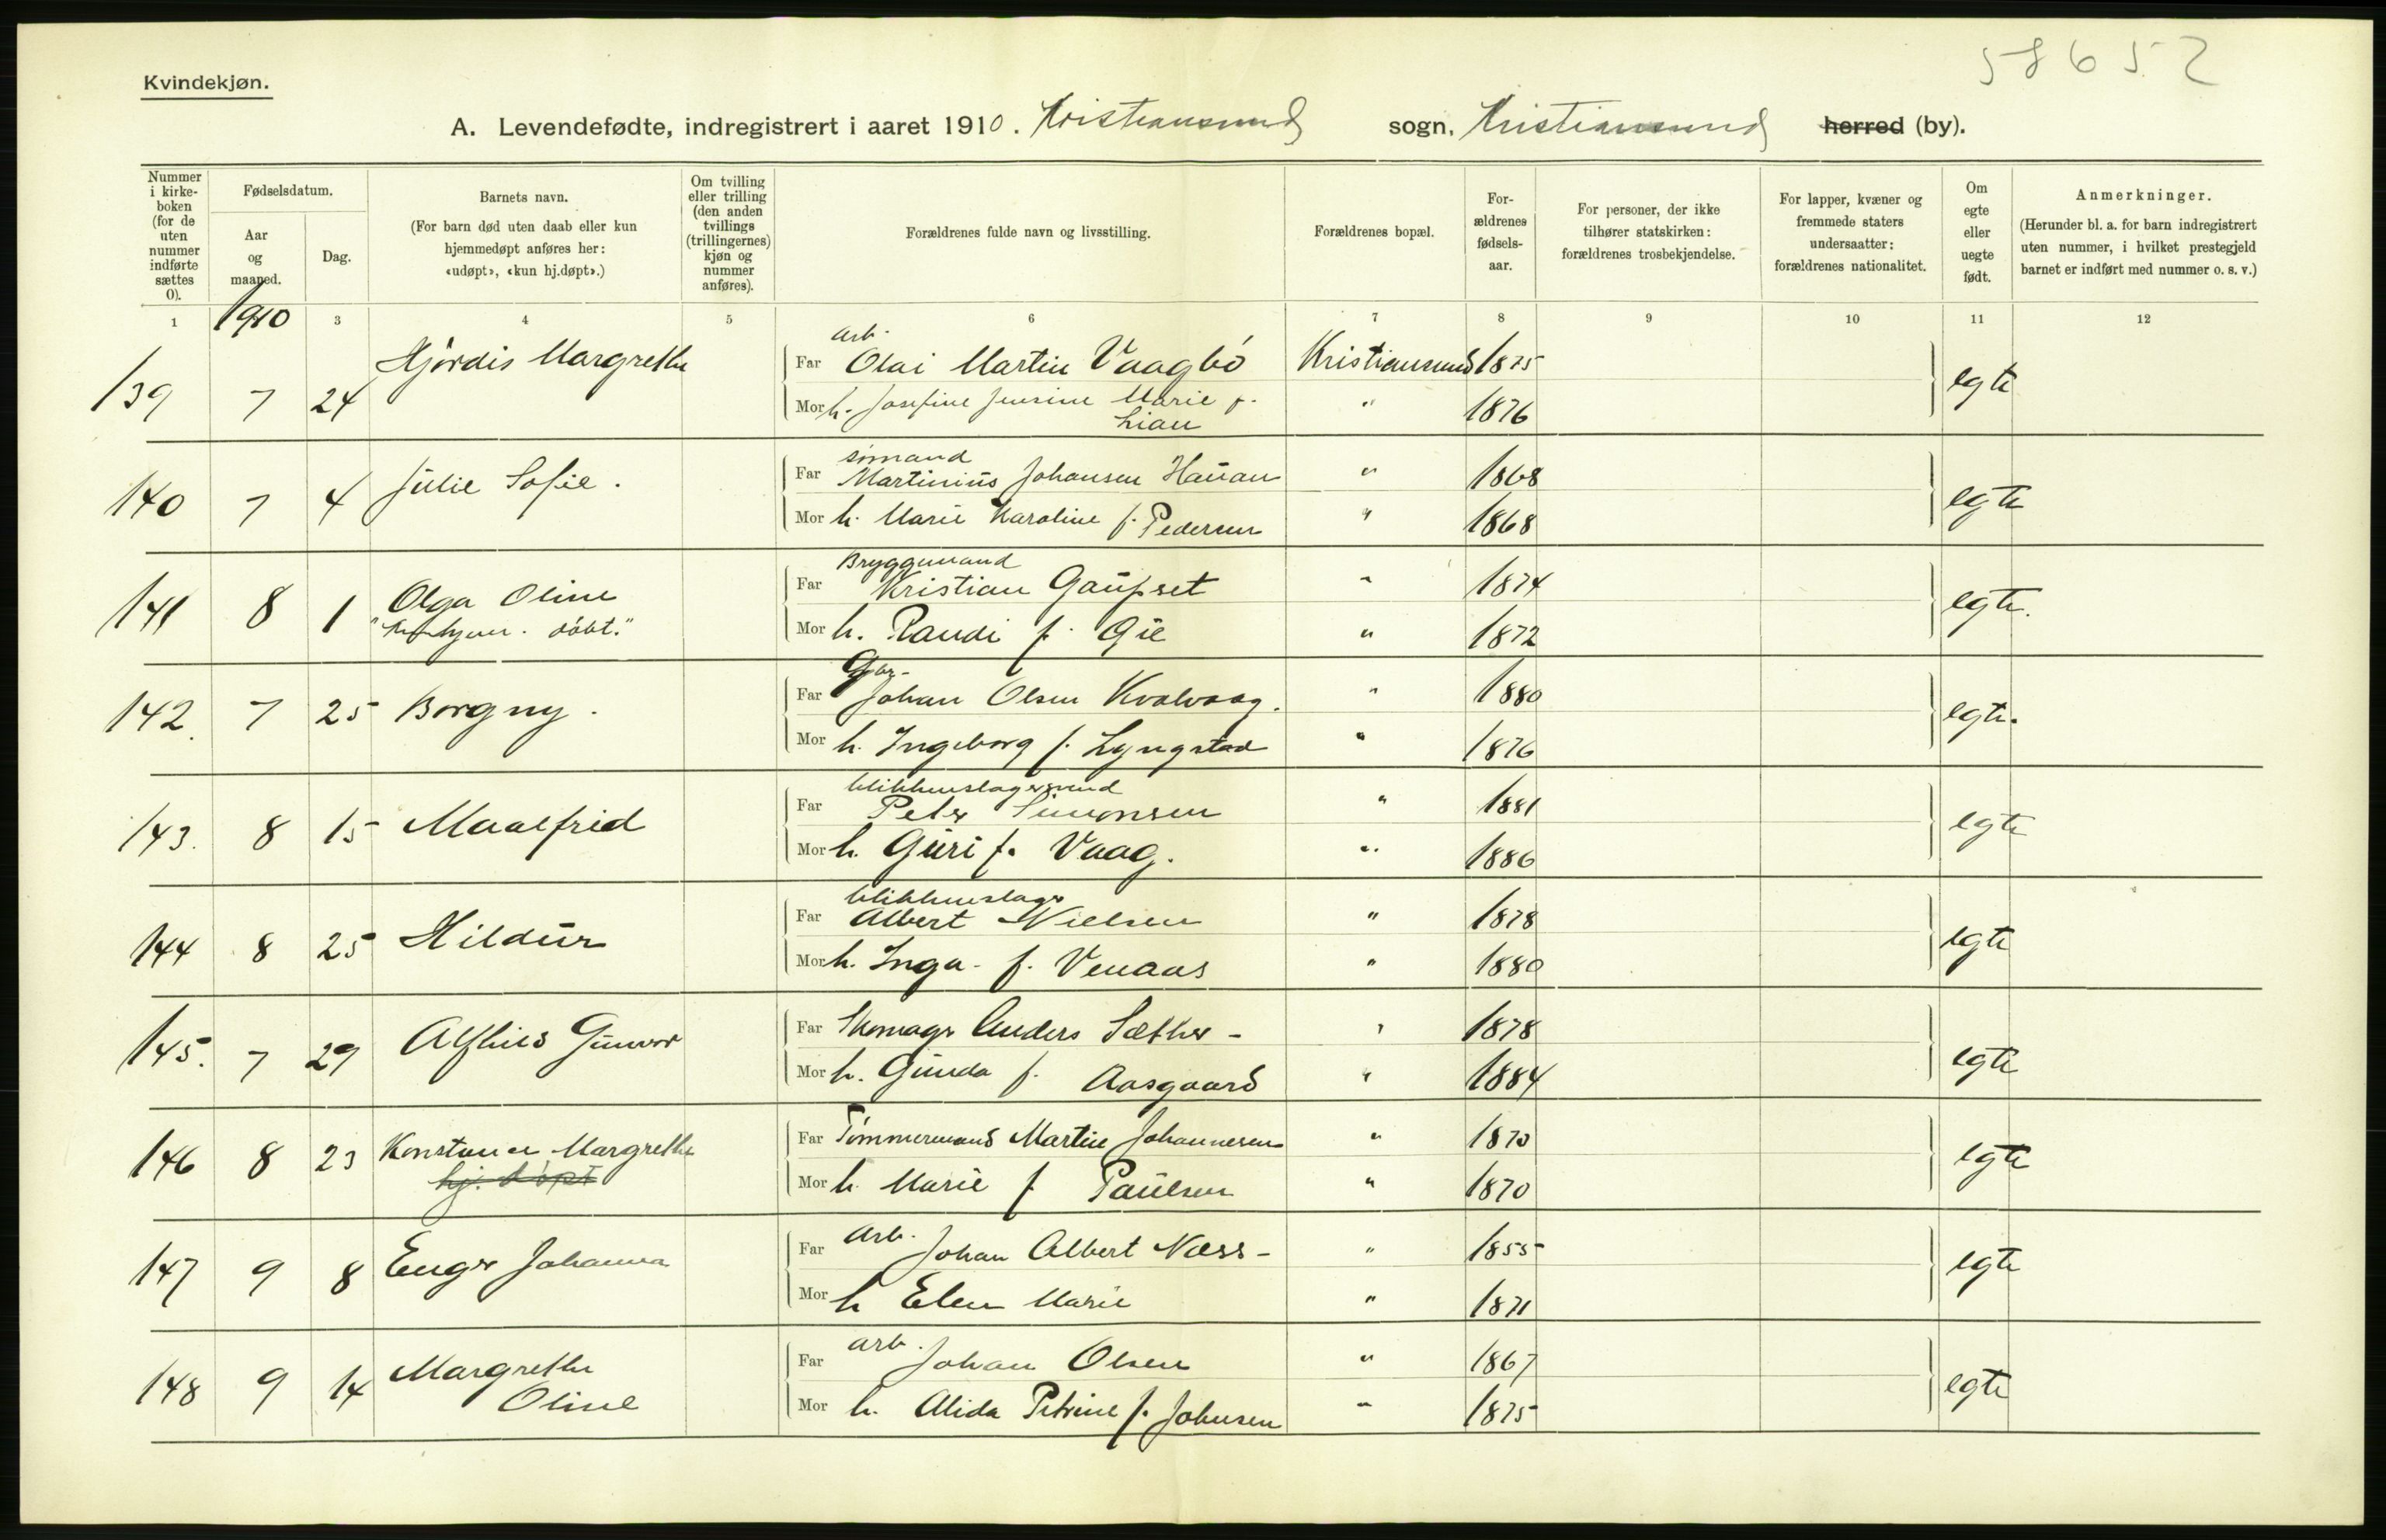 58652
Kvindekjøn.
A. Levendefødte, indregistrert i aaret 1910. Kristiansund sogn, Kristiansund herred (by).
Nummer i kirke-boken (for de uten nummer indførte sættes 0).
Fødselsdatum.
Aar og maaned.
Dag.
Barnets navn.
(For barn død uten daab eller kun hjemmedøpt anføres her: «udøpt», «kun hj.døpt».)
Om tvilling eller trilling (den anden tvillings (trillingernes) kjøn og nummer anføres).
Forældrenes fulde navn og livsstilling.
Forældrenes bopæl.
For-ældrenes fødsels-aar.
For personer, der ikke tilhører statskirken: forældrenes trosbekjendelse.
For lapper, kvæner og fremmede staters undersaatter: forældrenes nationalitet.
Om egte eller uegte født.
Anmerkninger.
(Herunder bl. a. for barn indregistrert uten nummer, i hvilket prestegjeld barnet er indført med nummer o. s. v.)
1 1910 3 4 5 6 7 8 9 10 11 12
arb.
139 7 24 Hjördis Margrethe Far Olai Martin Vaagbö Kristiansund 1875 egte
Mor h. Josefine Jensine Marie f. " 1876
Lian
sömand
140 7 4 Julie Sofie. Far Martinius Johansen Hauan " 1868 egte
Mor h. Marie Karoline f. Pedersen " 1868
Bryggemand
141 8 1 Olga Oline Far Kristian Gaupset " 1874 egte.
döbt." Mor h. Randi f. " 1872
142. 7 25 Borgny. Far Johan Olsen Kvalvaag. " 1880 egte.
Mor h. Ingeborg f. Lyngstad " 1876
blikkenslagersvend
143. 8 15 Maalfrid Far Peter Simonsen " 1881 egte
Mor h. Guri f. Vaag. " 1886
blikkenslager
144 8 25 Hildur Far Albert Nielsen " 1878 egte
Mor h. Inga f. Venaas " 1880
145. 7 29 Alfhild Gunvor Far Skomager Anders Sæther - " 1878 egte
Mor h. Gunda f. Aasgaard " 1884
146 8 23 Konstance Margrethe Far Tömmermand Martin Johannesen " 1870 egte
hj. döpt Mor h. Marie f Paulsen " 1870
arb.
147 9 8 Johanna Far Johan Albert Næss - " 1855 egte
Mor h Elen Marie " 1871
arb.
148 9 14 Margrethe Far Johan Olsen " 1867 egte
Oline Mor h. Alida Petrine f. Johnsen " 1875